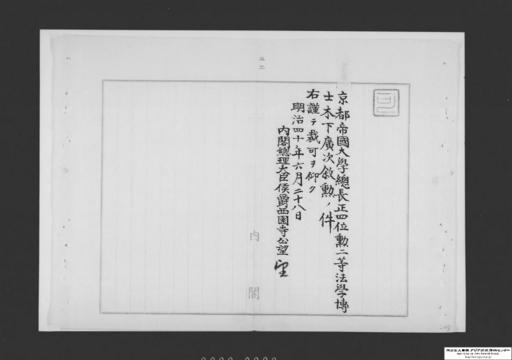 京都帝國大學總長正四位勲二等法學博
士木下廣次敘勲ノ件
右謹テ裁可ヲ仰ク
明治四十年六月二十八日
内閣總理大臣侯爵西園寺公望
内閣